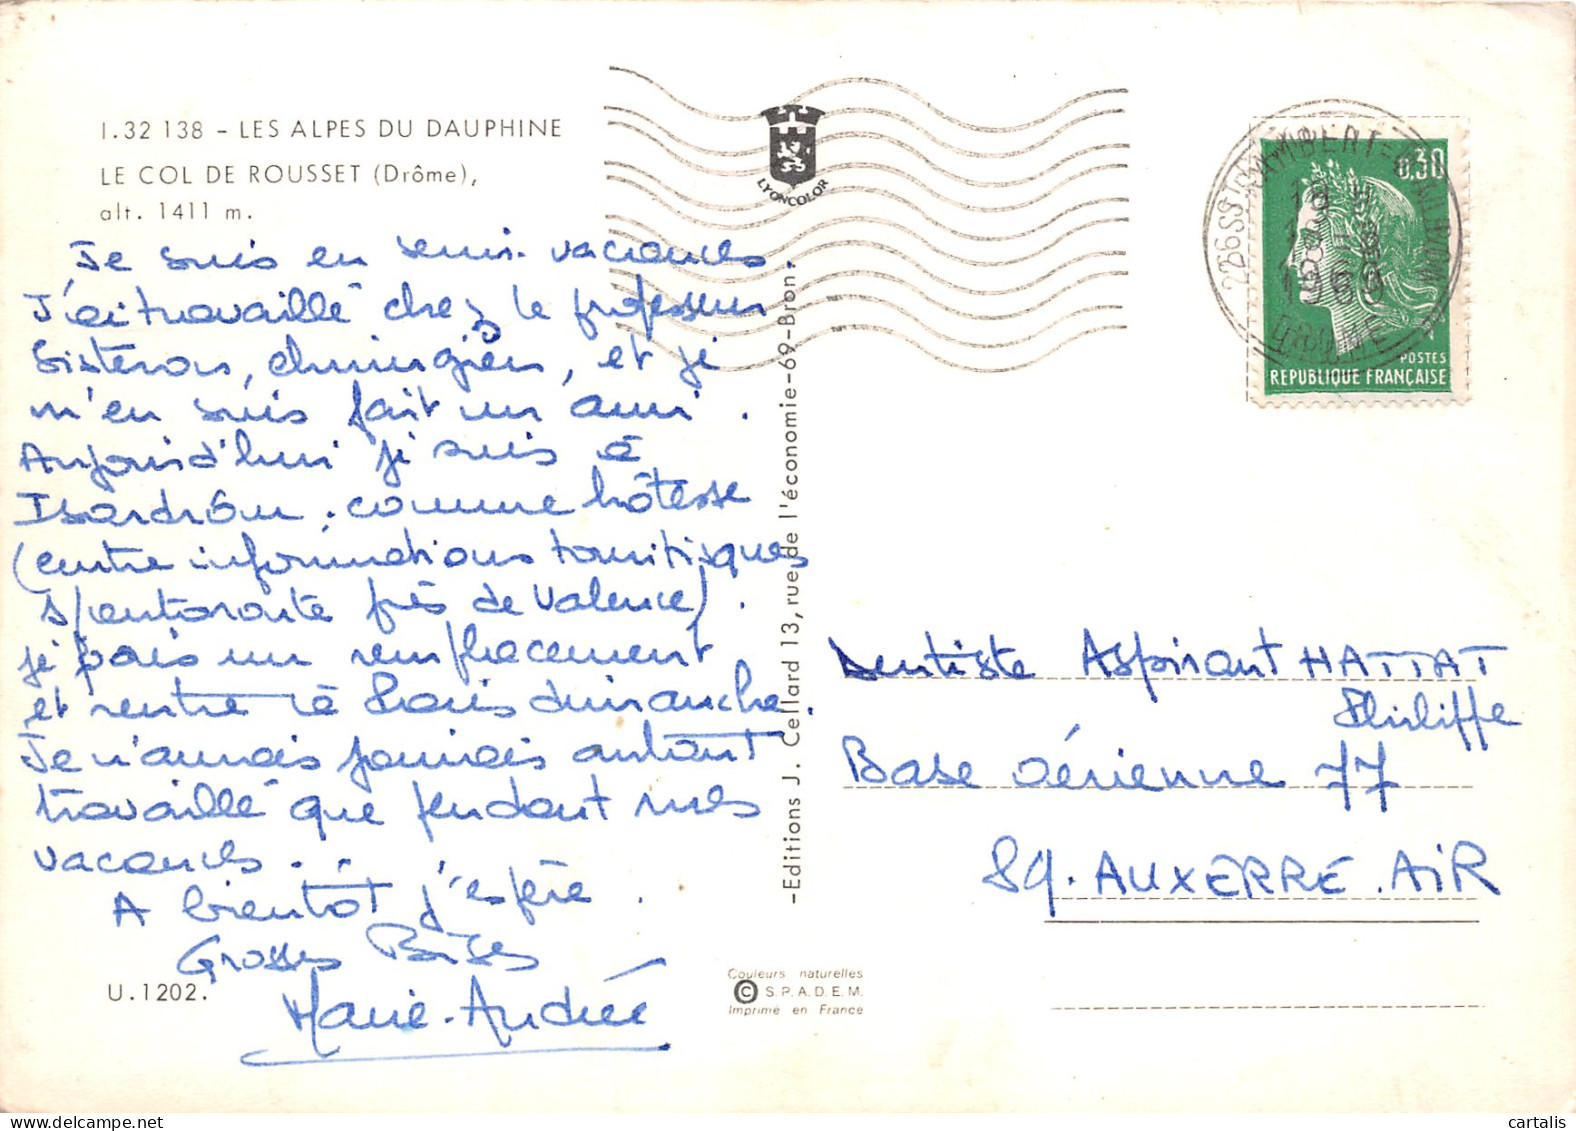 I.32 138 - LES ALPES DU DAUPHINE
LE COL DE ROUSSET (Drôme),
alt. 1411 m.
Je suis en semi-vacances.
J'ai travaillé chez le professeur
Sisteron, chirurgien, et je
m'en suis fait un ami.
Aujourd'hui je suis à
Isardrôme comme hôtesse
(centre informations touristiques
s/autoroute près de Valence).
je fais un remplacement
et rentre à Paris dimanche.
Je n'aurais jamais autant
travaillé que pendant mes
vacances...
A bientôt j'espère.
Grosses Bises
Marie-Andrée
U.1202.
LYONCOLOR
-Editions J. Cellard 13, rue de l'économie-69-Bron.
Couleurs naturelles
© S.P.A.D.E.M.
Imprimé en France
26 ST RAMBERT-D'ALBON
1969
DROME
0,30
POSTES
REPUBLIQUE FRANÇAISE
Dentiste Aspirant HATTAT
Philippe
Base aérienne 77
89. AUXERRE. AIR
cartalis